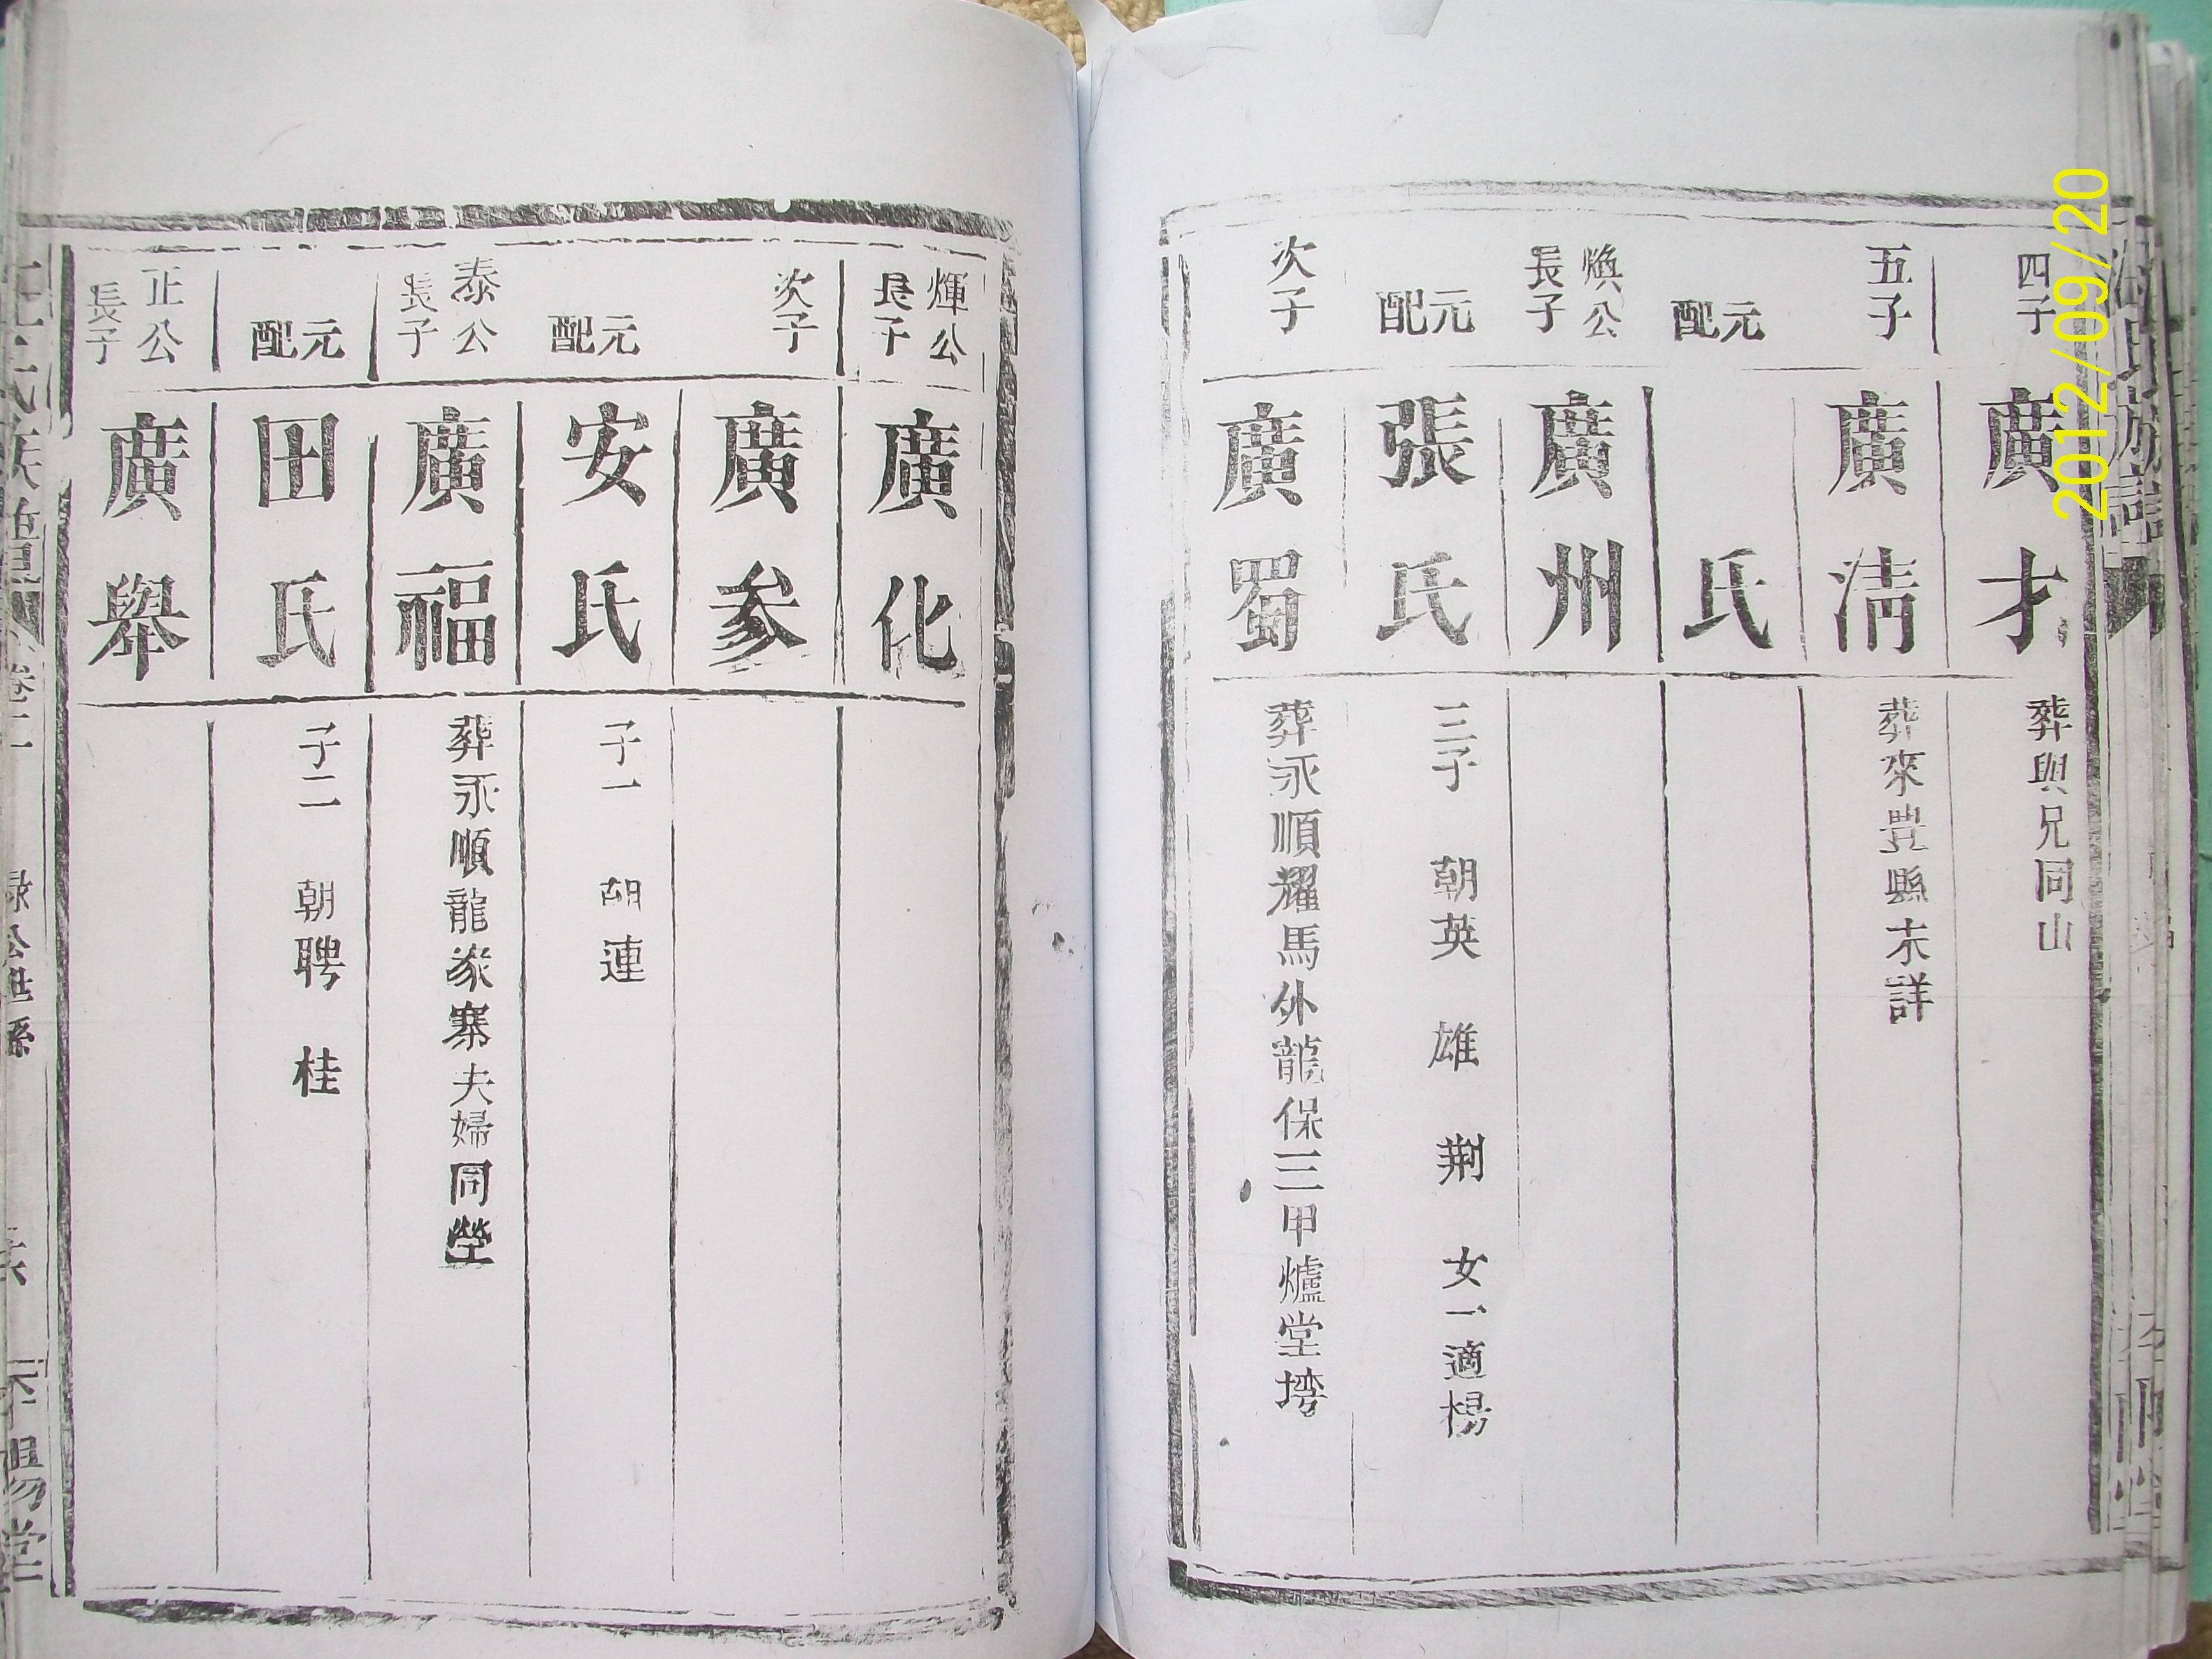 2012/09/20
四子
廣才
葬與兄同山
五子
廣淸
葬來豊縣未詳
元配
氏
煥公
長子
廣州
元配
張氏
三子 朝英 雄 荆 女一適楊
次子
廣蜀
葬永順耀馬外龍保三甲爐堂塆
煇公
長子
廣化
次子
廣参
元配
安氏
子一 朝連
泰公
長子
廣福
葬永順龍家寨夫婦同塋
元配
田氏
子二 朝聘 桂
正公
長子
廣舉